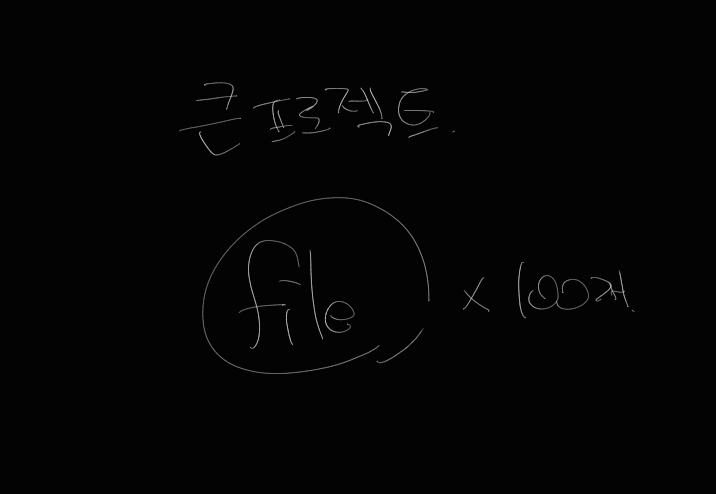 큰 프로젝트.
file × 100개.